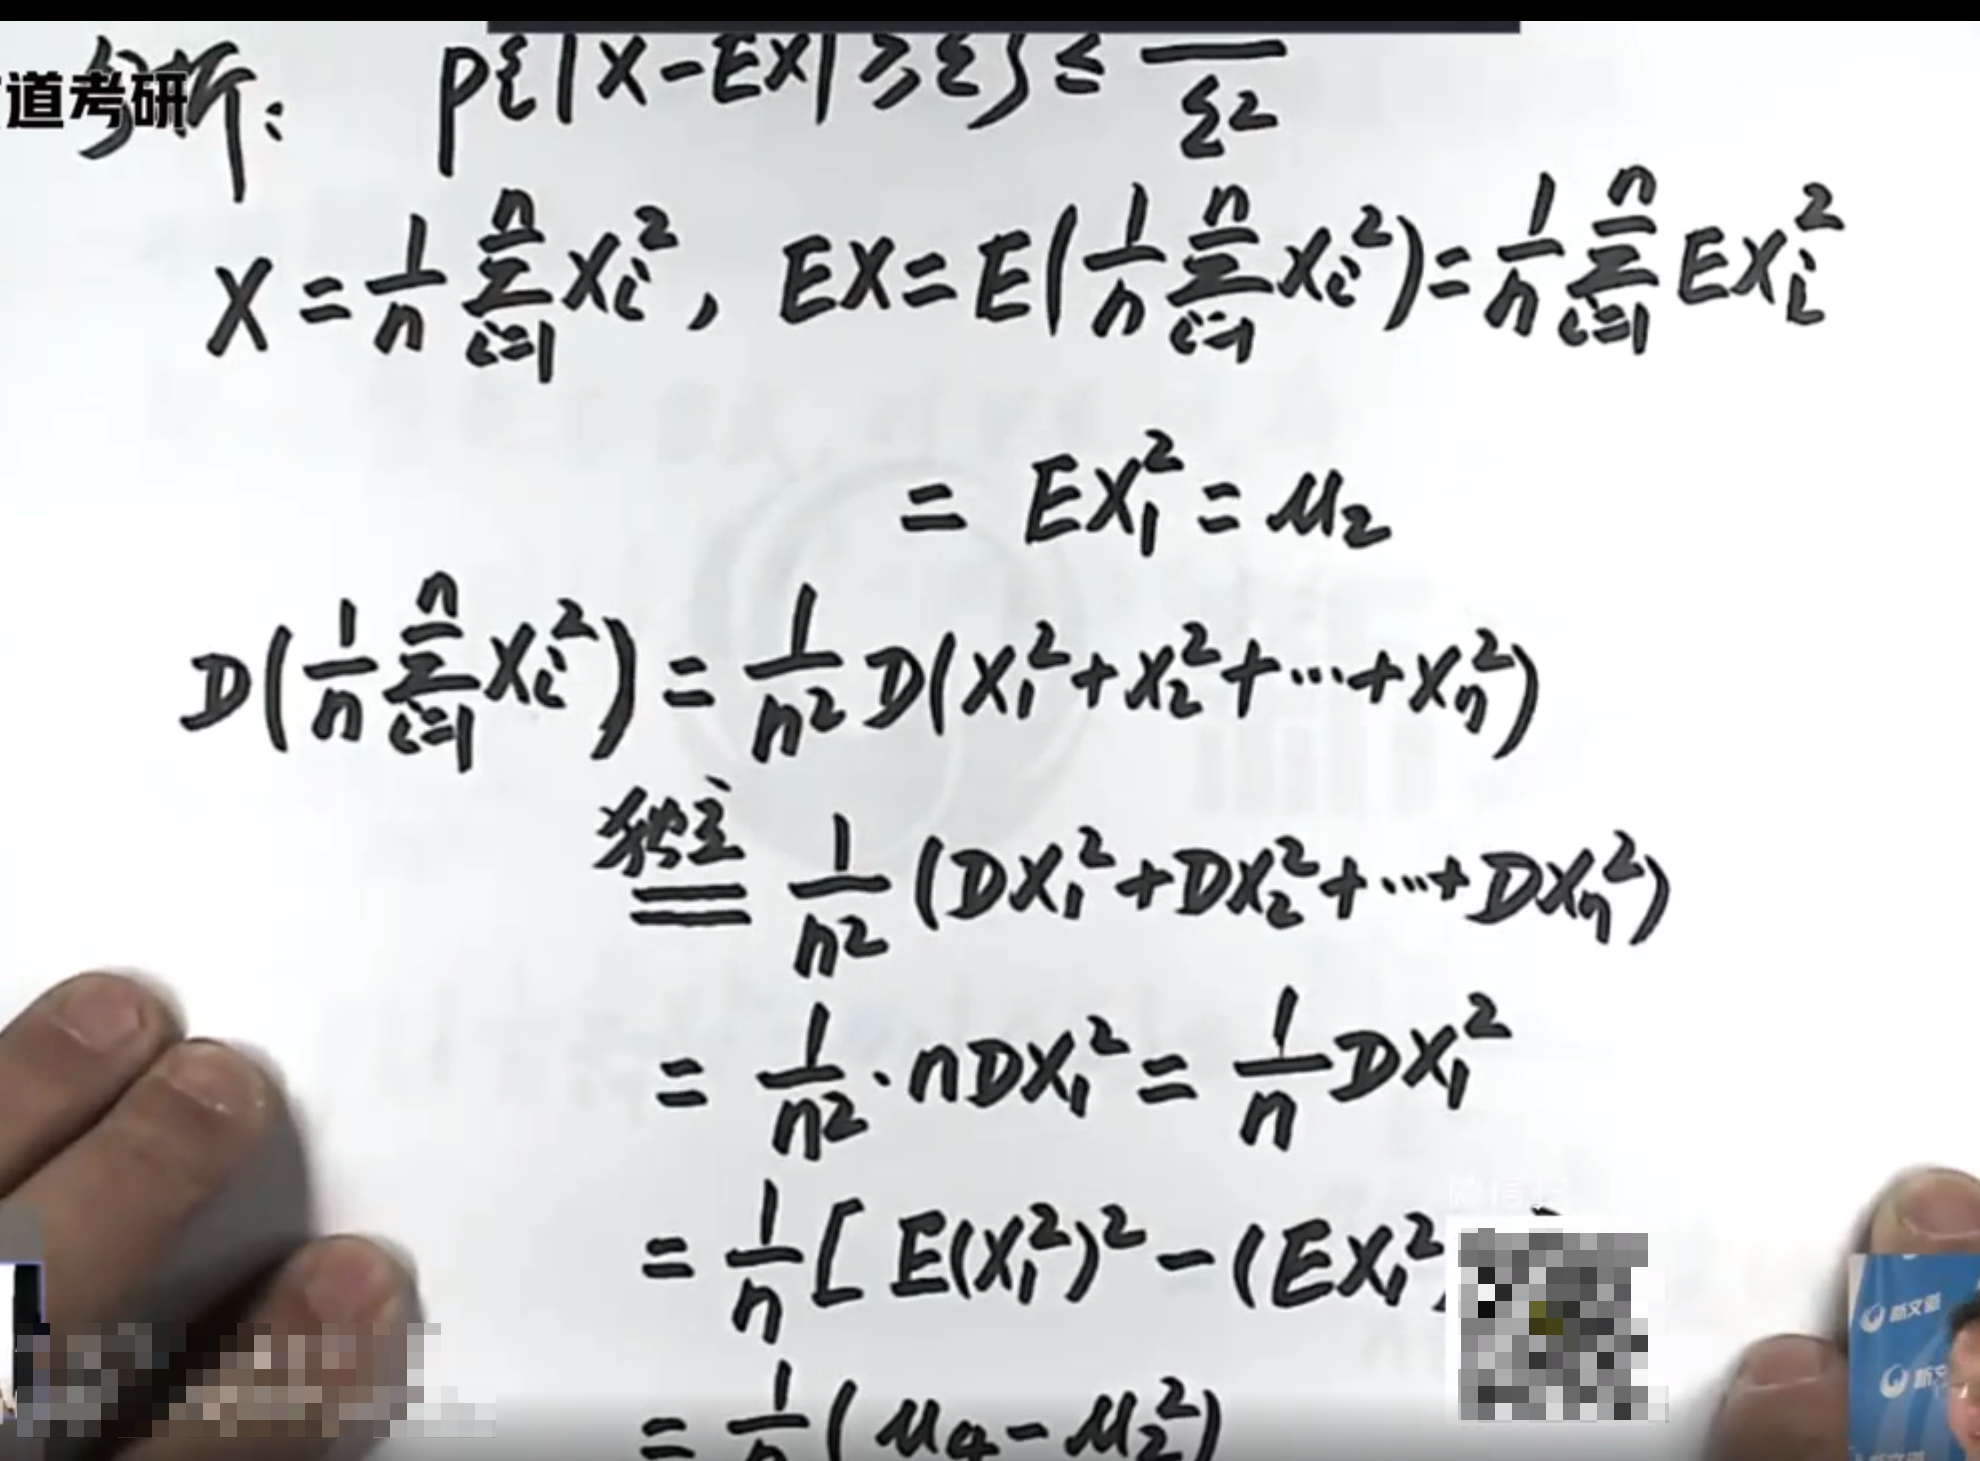 道考研
分析: P{|X-EX|≥ε}≤ ——/ε²
X = 1/n ∑_{i=1}^{n} X_i², EX = E(1/n ∑_{i=1}^{n} X_i²) = 1/n ∑_{i=1}^{n} EX_i²
= EX₁² = μ₂
D(1/n ∑_{i=1}^{n} X_i²) = 1/n² D(X₁²+X₂²+…+X_n²)
独立
= 1/n² (DX₁²+DX₂²+…+DX_n²)
= 1/n² · nDX₁² = 1/n DX₁²
= 1/n [E(X₁²)² - (EX₁²
= 1/n (μ₄ - μ₂²)
新文道
新文